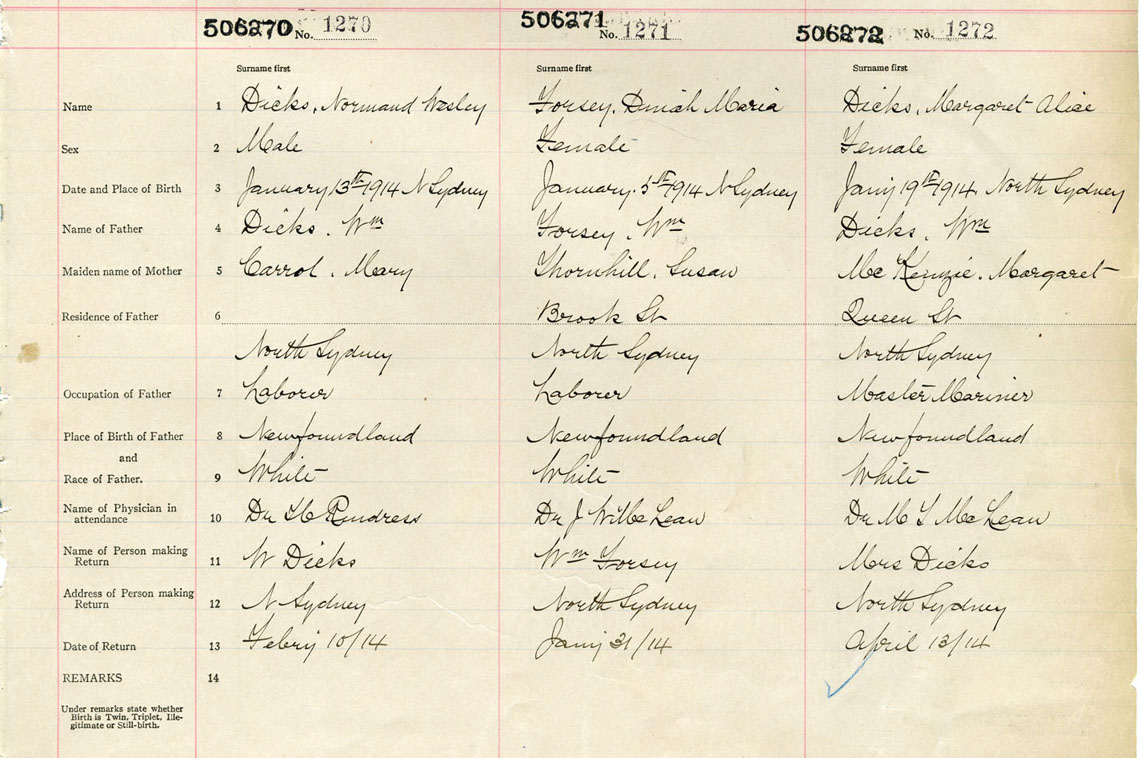 506270 No. 1270 506271 No. 1271 506272 No. 1272
Surname first Surname first Surname first
Name 1 Dicks, Normand Wesley Forsey, Dinah Maria Dicks, Margaret Alice
Sex 2 Male Female Female
Date and Place of Birth 3 January 13th 1914 N Sydney January 5th 1914 N Sydney Jany 19th 1914 North Sydney
Name of Father 4 Dicks, Wm Forsey, Wm Dicks, Wm
Maiden name of Mother 5 Carrol, Mary Thornhill, Susan McKenzie, Margaret
Residence of Father 6 Brook St Queen St
North Sydney North Sydney North Sydney
Occupation of Father 7 Laborer Laborer Master Mariner
Place of Birth of Father 8 Newfoundland Newfoundland Newfoundland
and
Race of Father. 9 White White White
Name of Physician in
attendance 10 Dr Dr J W McLean Dr M McLean
Name of Person making
Return 11 W Dicks Wm Forsey Mrs Dicks
Address of Person making
Return 12 N Sydney North Sydney North Sydney
Date of Return 13 Febry 10/14 Jany 31/14 April 13/14
REMARKS 14
Under remarks state whether
Birth is Twin, Triplet, Ille-
gitimate or Still-birth.